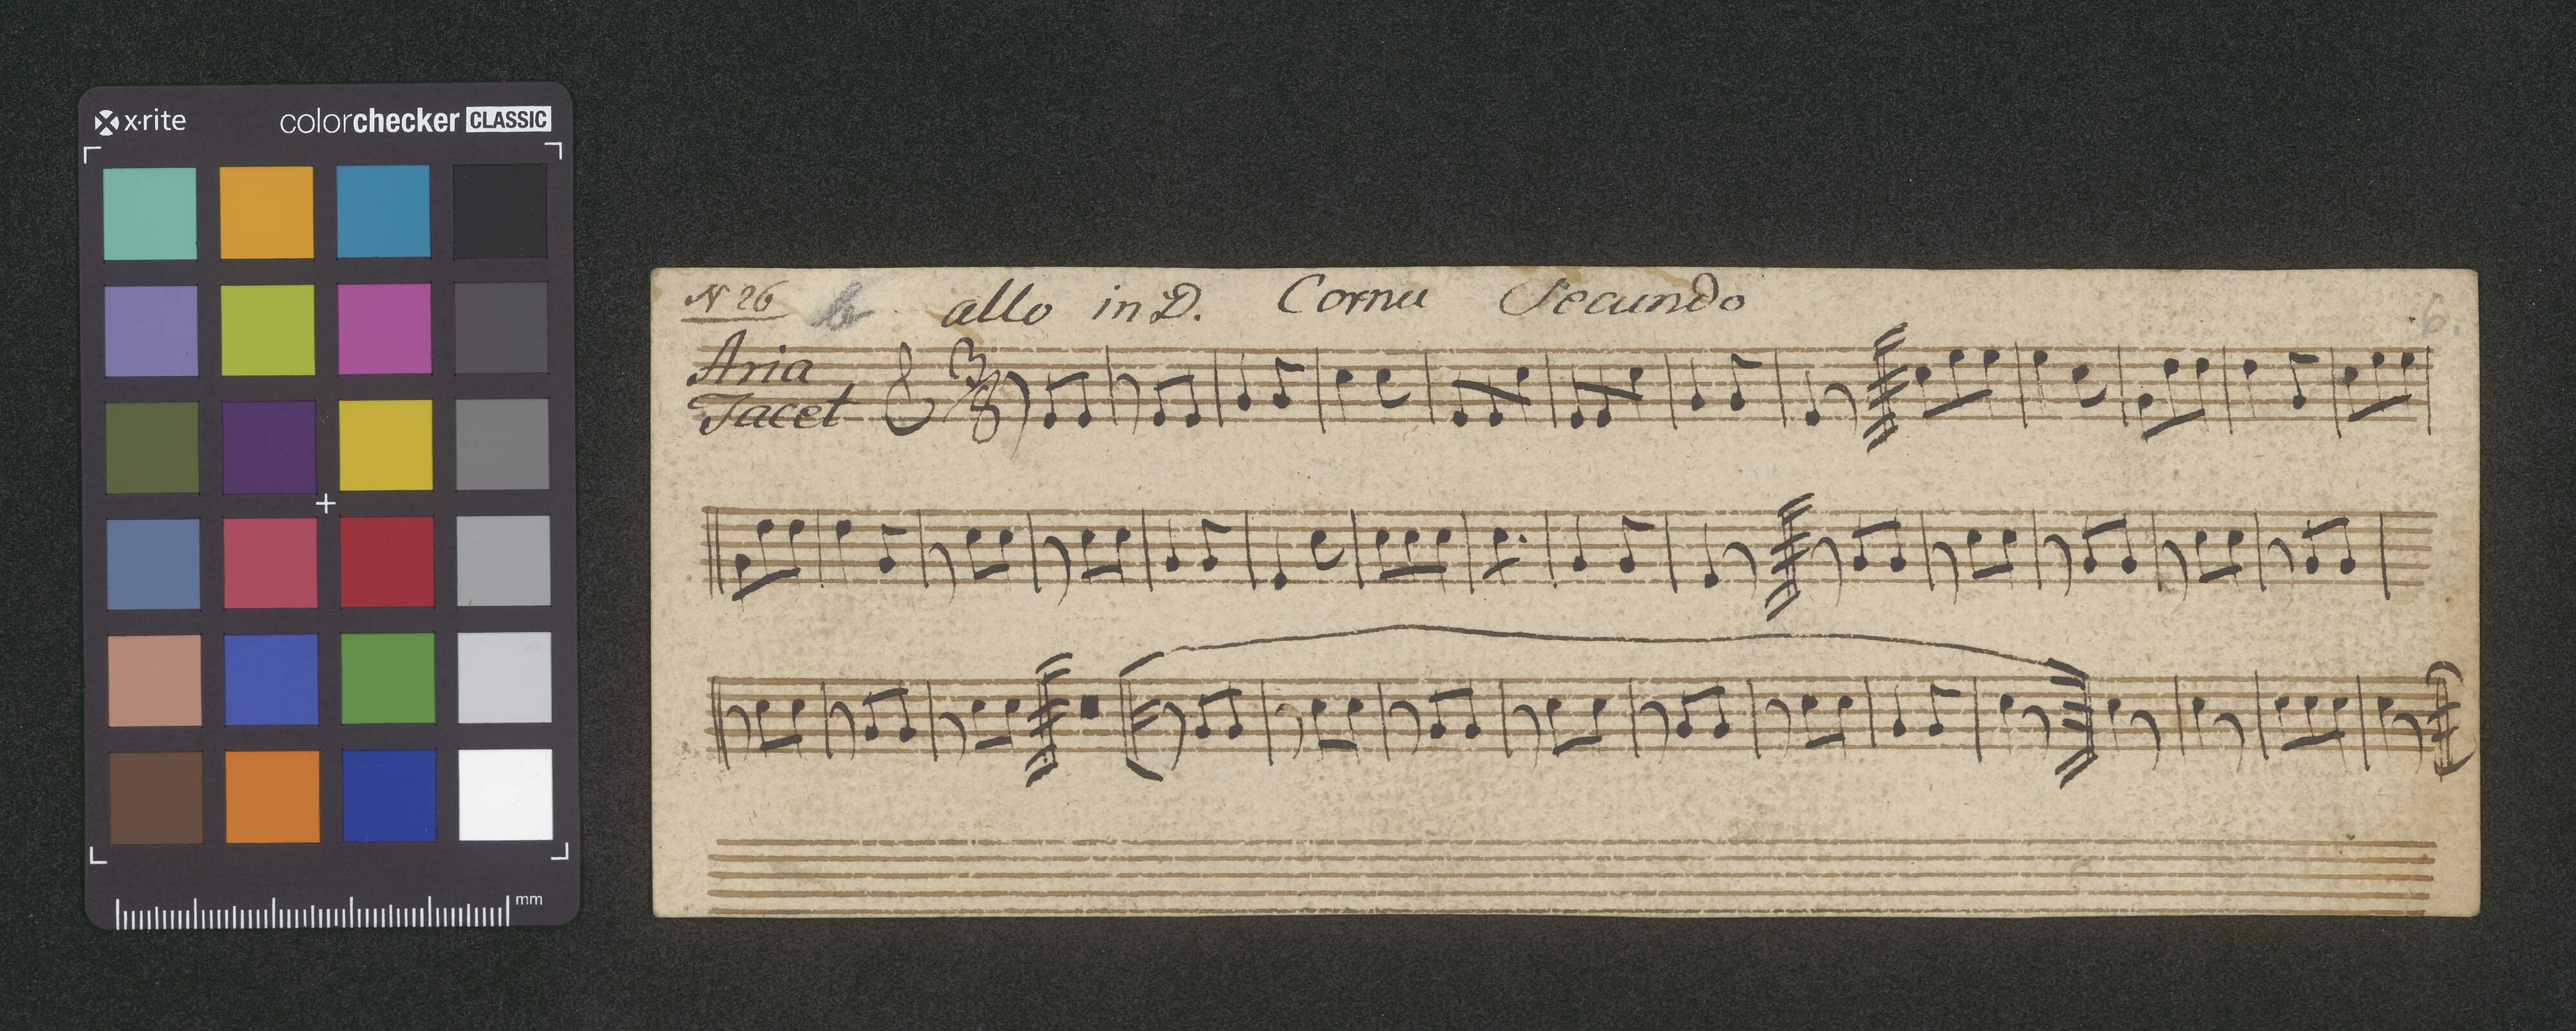 x·rite colorchecker CLASSIC
mm
N 26 allo in D. Cornu Secundo 6.
Aria
Tacet
3/8